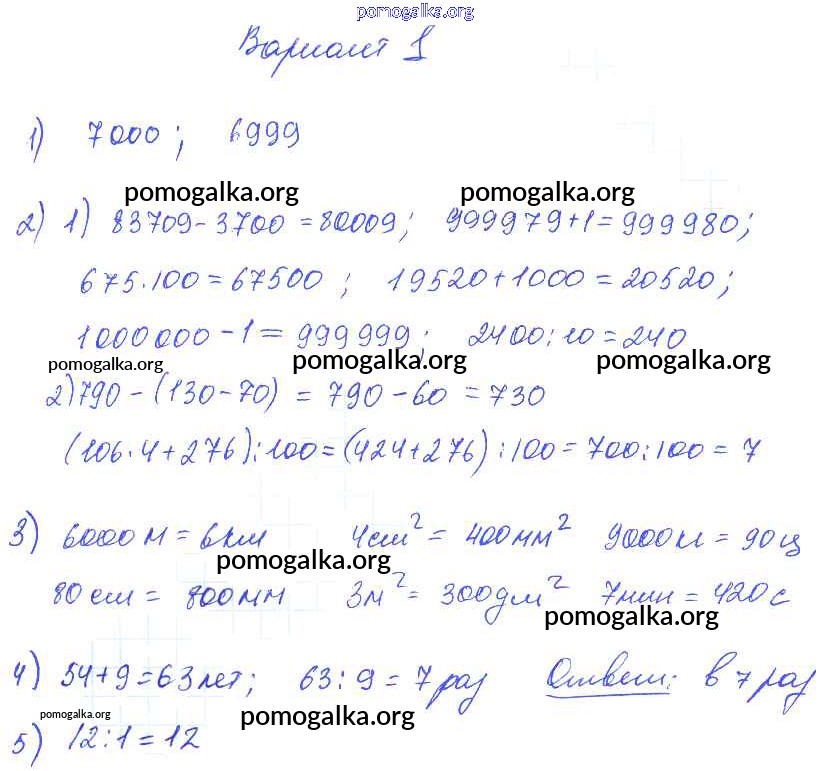 pomogalka.org
Вариант 1
1) 7000; 6999
pomogalka.org pomogalka.org
2) 1) 83709-3700=80009; 999979+1=999980;
675·100=67500; 19520+1000=20520;
1000000-1=999999; 2400:10=240
pomogalka.org pomogalka.org pomogalka.org
2) 790-(130-70)=790-60=730
(106·4+276):100=(424+276):100=700:100=7
3) 6000м=6км 4см²=400мм² 9000кг=90ц
pomogalka.org
80см=800мм 3м²=300дм² 7мин=420с
pomogalka.org
4) 54+9=63лет; 63:9=7раз Ответ: в 7раз
pomogalka.org pomogalka.org
5) 12:1=12